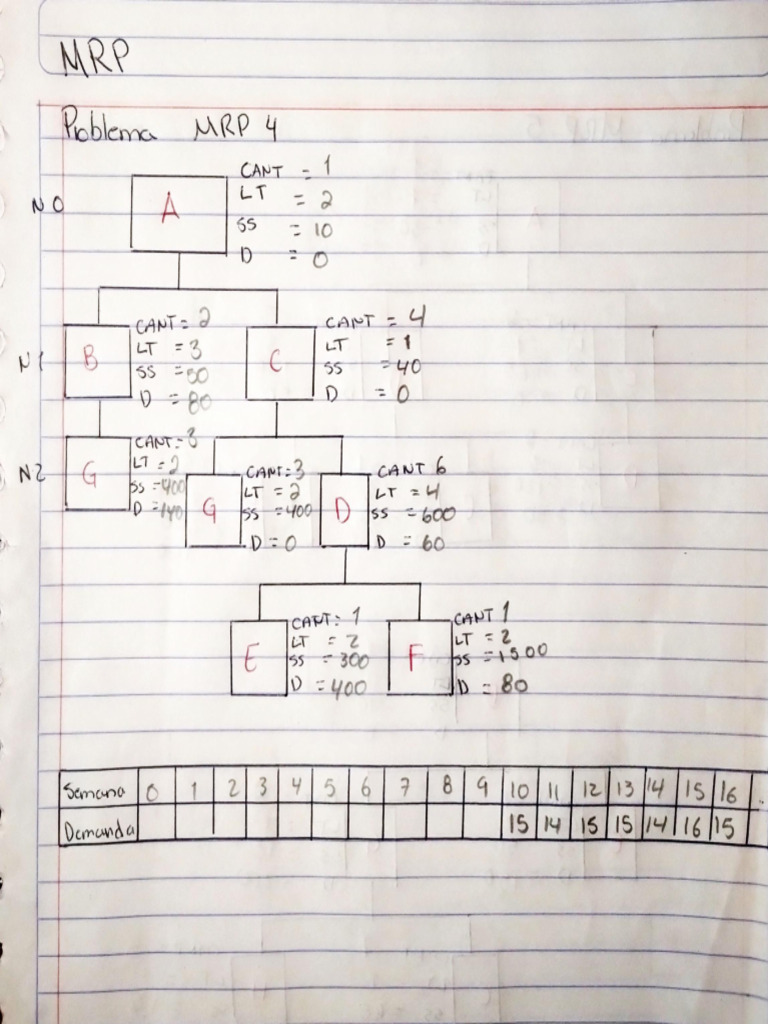 MRP
Problema MRP 4
N0
A
CANT = 1
LT = 2
SS = 10
D = 0
N1
B
CANT = 2
LT = 3
SS =
D = 80
C
CANT = 4
LT = 1
SS = 40
D = 0
N2
G
CANT = 3
LT = 2
SS = 400
D = 140
G
CANT: 3
LT = 2
SS = 400
D = 0
D
CANT 6
LT = 4
SS = 600
D = 60
E
CANT: 1
LT = 2
SS = 300
D = 400
F
CANT 1
LT = 2
SS = 1500
D = 80
Semana 0 1 2 3 4 5 6 7 8 9 10 11 12 13 14 15 16
Demanda 15 14 15 15 14 16 15